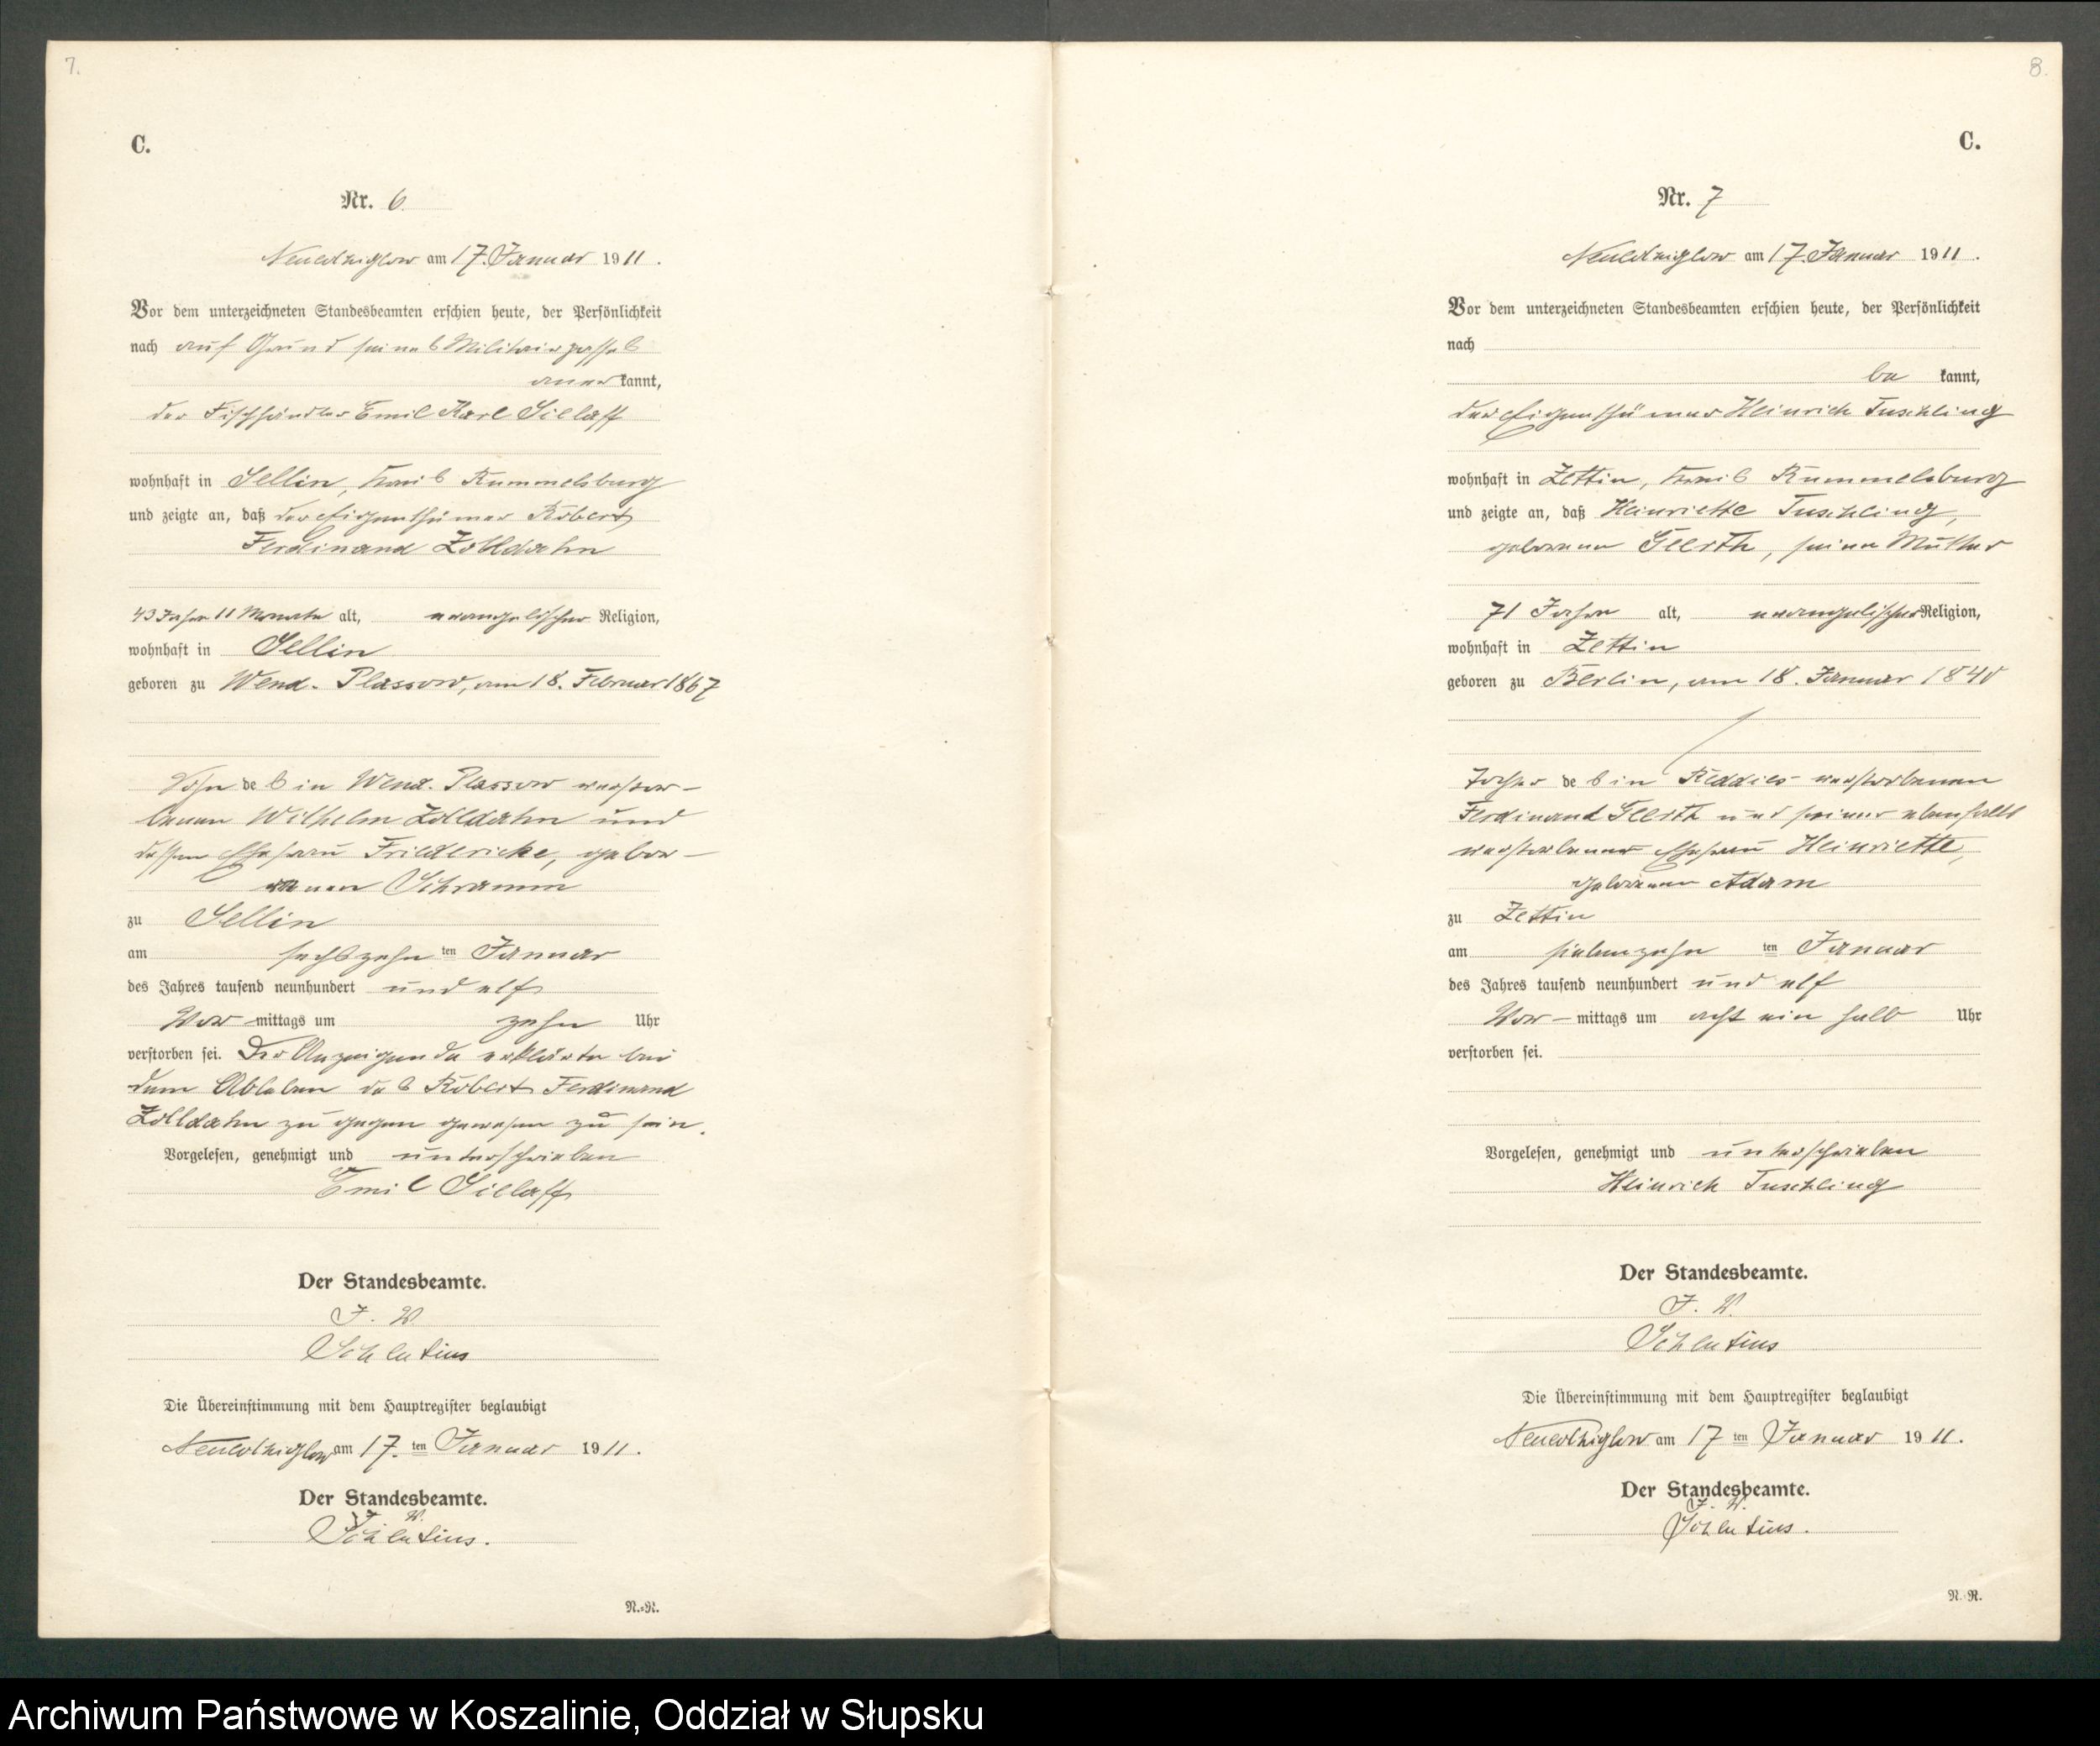 7.
C.
Nr. 6.
am 17. Januar 1911.
Vor dem unterzeichneten Standesbeamten erschien heute, der Persönlichkeit
nach auf Grund seines Militairpasses
anerkannt,
der Fischhändler Emil Karl Sielaff
wohnhaft in Sellin, Kreis Rummelsburg
und zeigte an, daß der Eigenthümer Robert
Ferdinand Zolldahn
43 Jahre 11 Monate alt, evangelischer Religion,
wohnhaft in Sellin
geboren zu Wend. Plassow, am 18. Februar 1867
Sohn des in Wend. Plassow verstor-
benen Wilhelm Zolldahn und
dessen Ehefrau Friedericke, gebor-
enen Schramm
zu Sellin
am sechszehnten Januar
des Jahres tausend neunhundert und elf
Vor-mittags um zehn Uhr
verstorben sei. Der Anzeigende erklärte bei
dem Ableben des Robert Ferdinand
Zolldahn zu gegen gewesen zu sein.
Vorgelesen, genehmigt und unterschrieben
Emil Sielaff
Der Standesbeamte.
J. V.
Die Übereinstimmung mit dem Hauptregister beglaubigt
am 17. ten Januar 1911.
Der Standesbeamte.
J. V.
N.=R.
8.
C.
Nr. 7
am 17. Januar 1911.
Vor dem unterzeichneten Standesbeamten erschien heute, der Persönlichkeit
nach
be kannt,
der Eigenthümer Heinrich Tuschling
wohnhaft in Zettin, Kreis Rummelsburg
und zeigte an, daß Heinriette Tuschling,
geborene Geerth, seine Mutter
71 Jahre alt, evangelischer Religion,
wohnhaft in Zettin
geboren zu Berlin, am 18. Januar 1840
Tochter des in Reddies verstorbenen
Ferdinand Geerth und seiner ebenfalls
verstorbenen Ehefrau Heinriette,
geborenen Adam
zu Zettin
am siebenzehn ten Januar
des Jahres tausend neunhundert und elf
Vor-mittags um acht ein halb Uhr
verstorben sei.
Vorgelesen, genehmigt und unterschrieben
Heinrich Tuschling
Der Standesbeamte.
J. V.
Die Übereinstimmung mit dem Hauptregister beglaubigt
am 17 ten Januar 1911.
Der Standesbeamte.
J. V.
N.=R.
Archiwum Państwowe w Koszalinie, Oddział w Słupsku